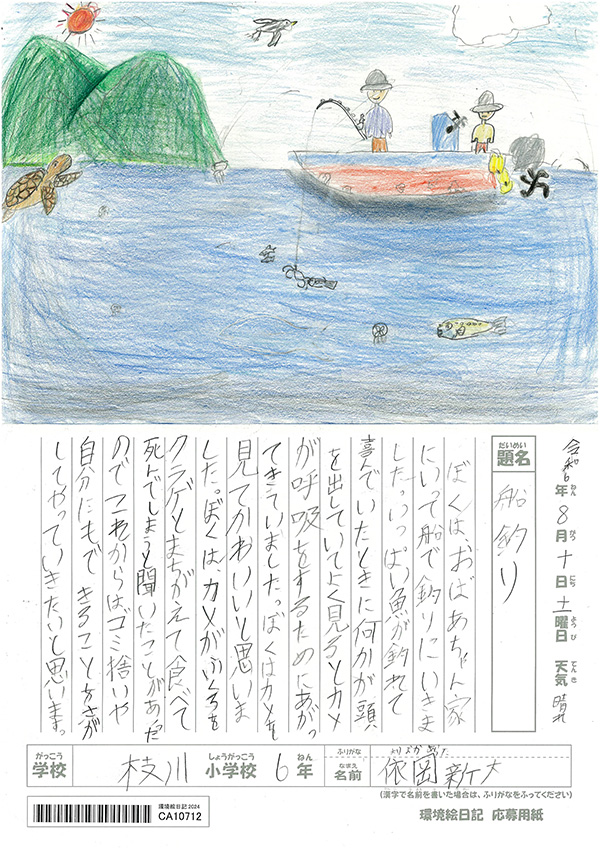 令和6年8月十日土曜日 天気 晴れ
ねん がつ にち ようび てんき
だいめい
題名 船釣り
ぼくは、おばあちゃん家
にいって船で釣りにいきま
した。いっぱい魚が釣れて
喜んでいたときに何かが頭
を出していてよく見るとカメ
が呼吸をするためにあがっ
てきていました。ぼくはカメを
見てかわいいと思いま
した。ぼくはカメがふくろを
クラゲとまちがえて食べて
死んでしまうと聞いたことがあった
のでこれからはゴミ捨いや
自分にもできることをさが
してやっていきたいと思います。
がっこう しょうがっこう ねん
学校 枝川小学校 6年
ふりがな よりおか あらた
なまえ
名前 依岡 新大
(漢字で名前を書いた場合は、ふりがなをふってください)
環境絵日記2024
CA10712
環境絵日記 応募用紙